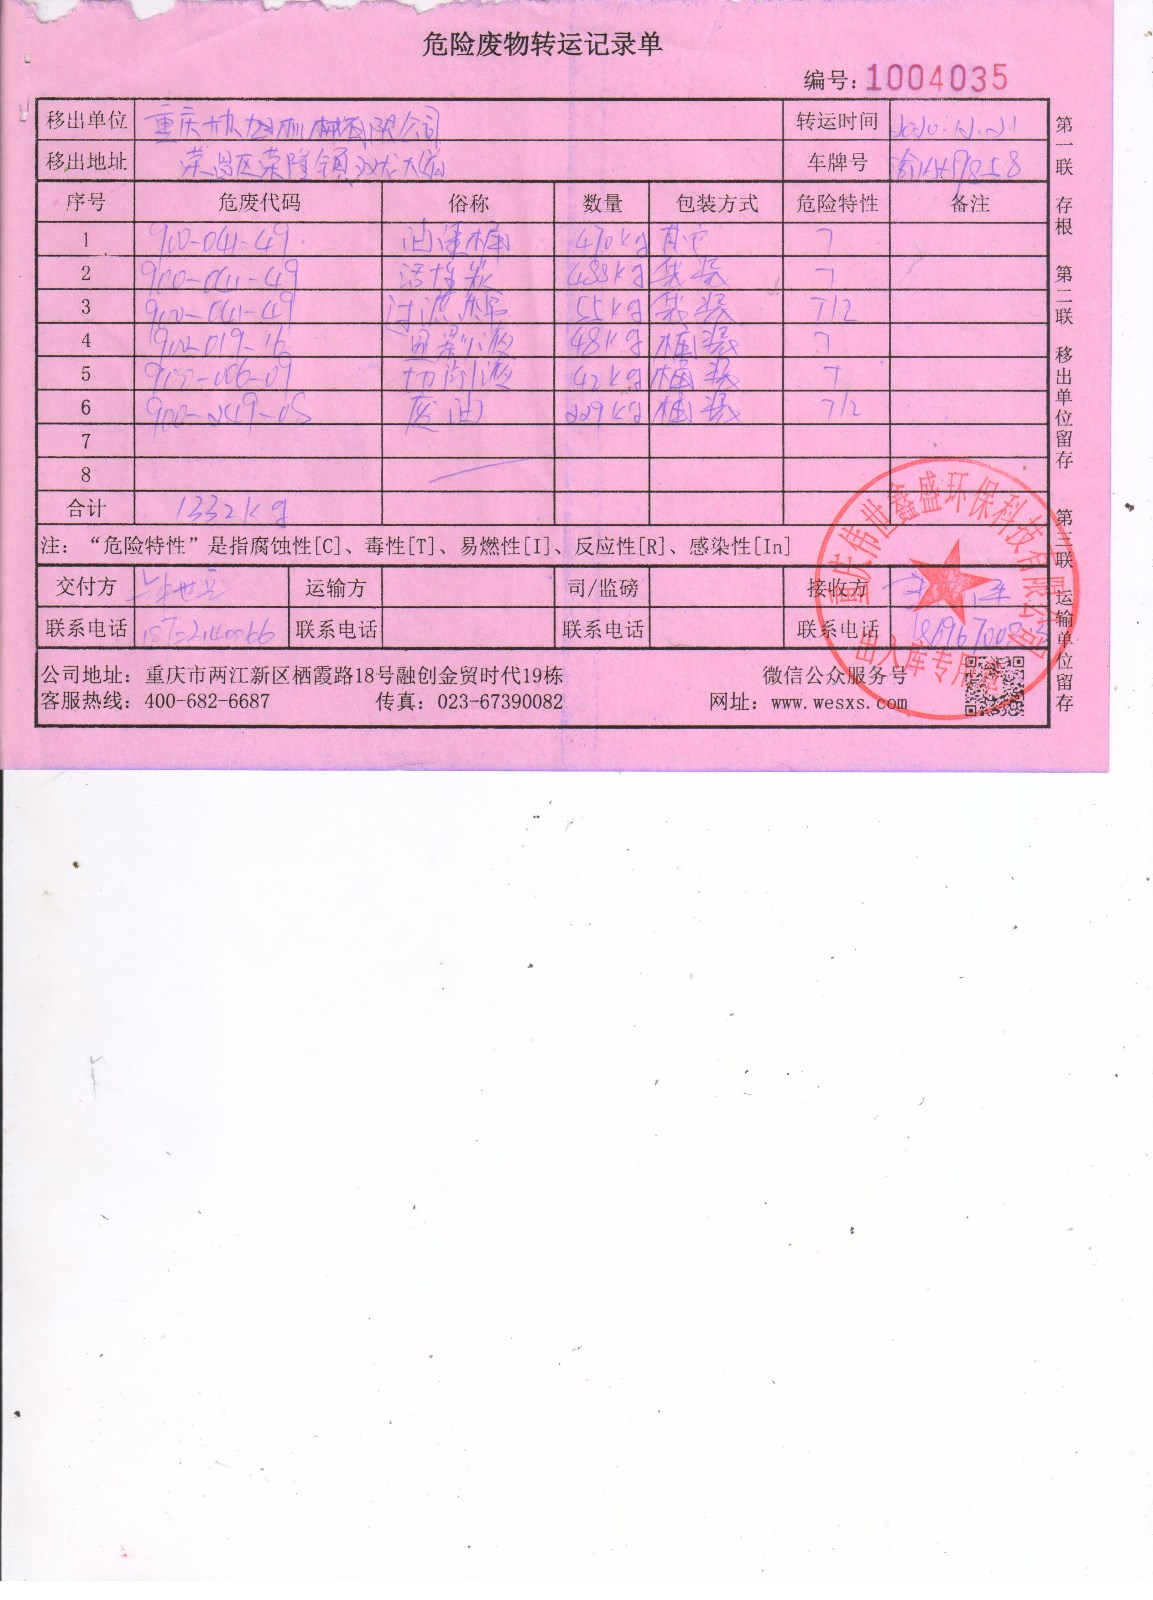 危险废物转运记录单
编号: 1004035
移出单位 重庆 机械有限公司 转运时间 2020.12.21
移出地址 荣昌区荣隆镇 车牌号
序号 危废代码 俗称 数量 包装方式 危险特性 备注
1 900-041-49 油漆桶 470kg 其它 T
2 900-041-49 活性炭 488kg 袋装 T
3 900-041-49 过滤棉 55kg 袋装 T/2
4 900-019-16 显影液 48kg 桶装 T
5 900-006-09 切削液 42kg 桶装 T
6 900-249-08 废油 229kg 桶装 T/2
7
8
合计 1332kg
注: “危险特性”是指腐蚀性[C]、毒性[T]、易燃性[I]、反应性[R]、感染性[In]
交付方 运输方 司/监磅 接收方
联系电话 联系电话 联系电话 联系电话
公司地址: 重庆市两江新区栖霞路18号融创金贸时代19栋 微信公众服务号
客服热线: 400-682-6687 传真: 023-67390082 网址: www.wesxs.com
第一联 存根 第二联 移出单位留存 第三联 运输单位留存
重庆伟世鑫盛环保科技有限公司
出入库专用章